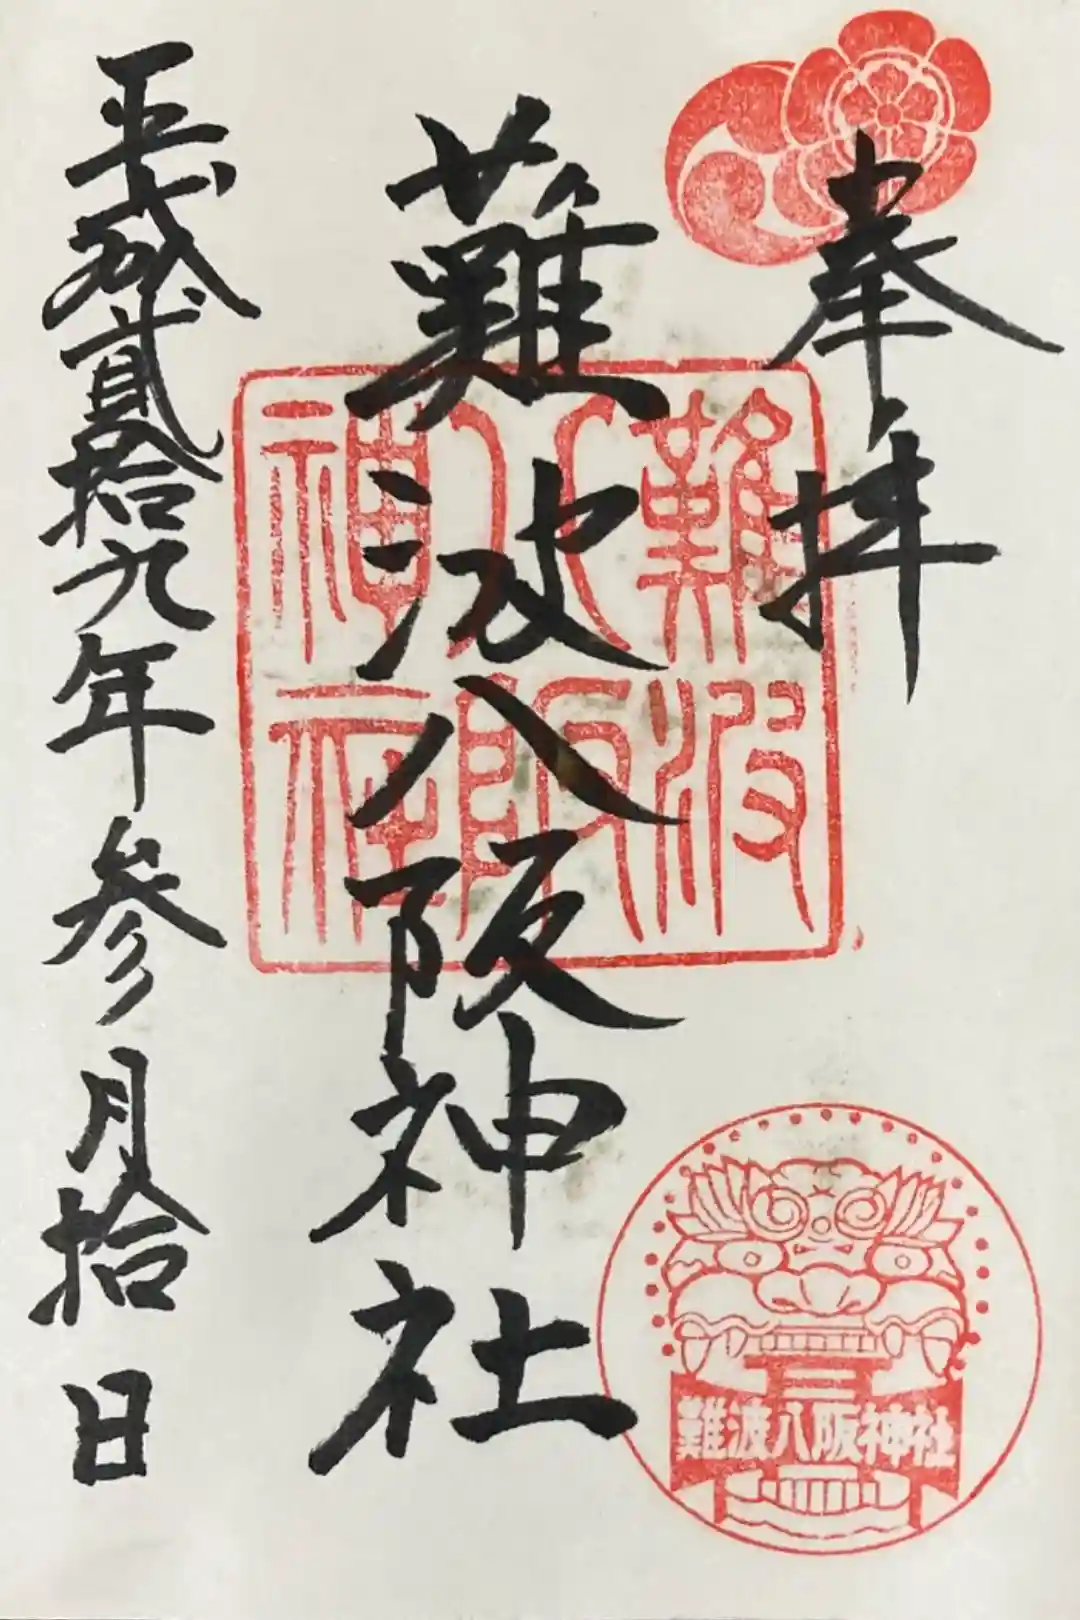 奉拝
難波八阪神社
平成貳拾九年参月拾日
難波
八阪
神社
難波八阪神社